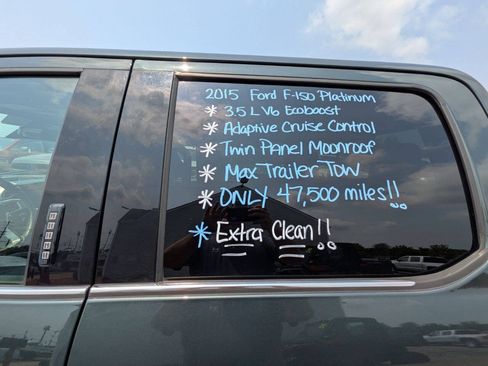 2015 Ford F-150 Platinum
* 3.5L V6 Ecoboost
* Adaptive Cruise Control
* Twin Panel Moonroof
* Max Trailer Tow
* ONLY 47,500 miles!!
* Extra Clean!!